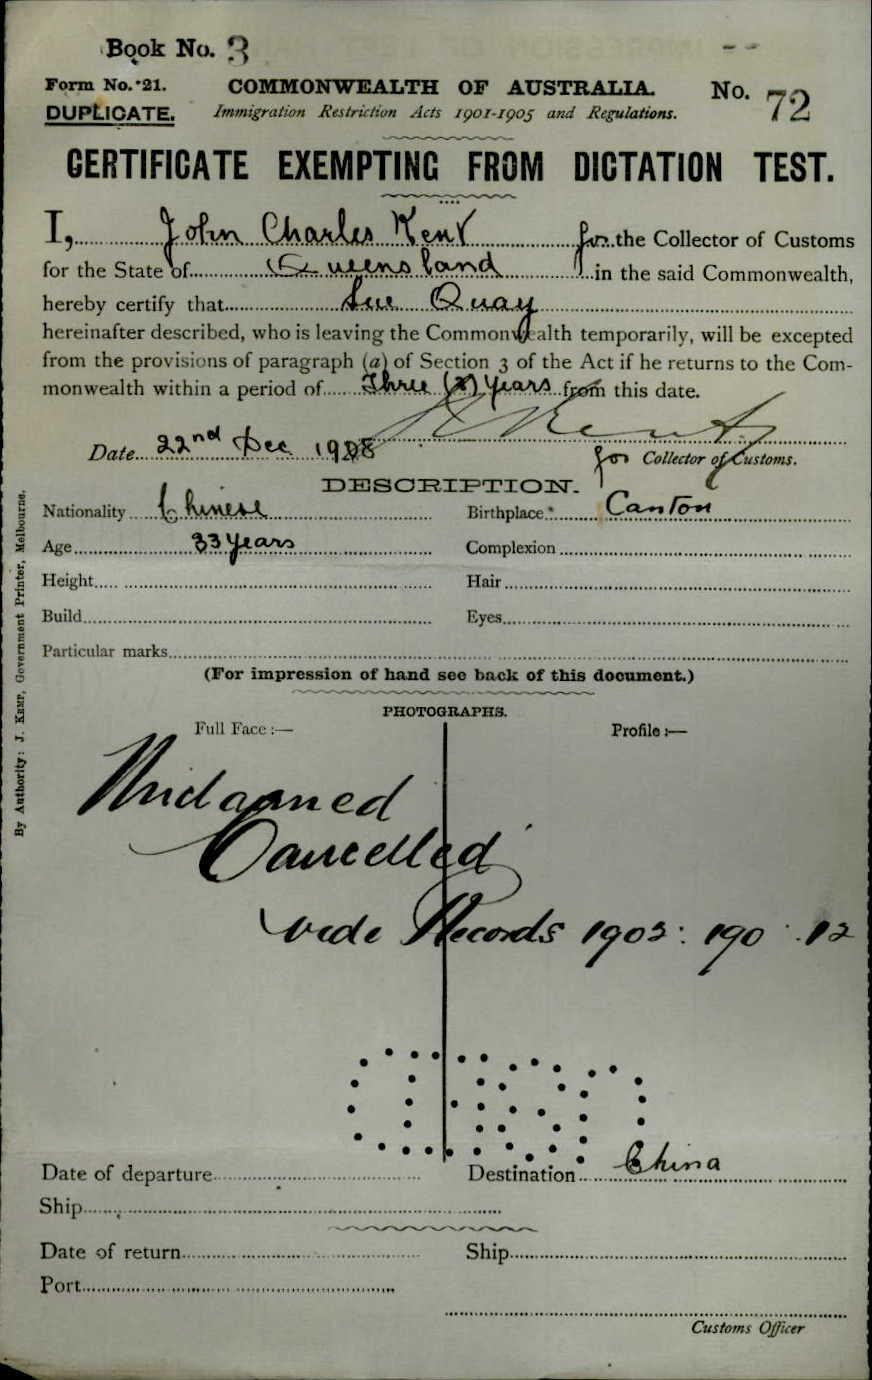 Book No. 3
Form No. 21. COMMONWEALTH OF AUSTRALIA. No. 72
DUPLICATE. Immigration Restriction Acts 1901-1905 and Regulations.
CERTIFICATE EXEMPTING FROM DICTATION TEST.
I, John Charles Kent for the Collector of Customs
for the State of Queensland in the said Commonwealth,
hereby certify that Sue Quay
hereinafter described, who is leaving the Commonwealth temporarily, will be excepted
from the provisions of paragraph (a) of Section 3 of the Act if he returns to the Com-
monwealth within a period of Three (3) Years from this date.
Kent
Date 22nd Dec 1908
for Collector of Customs.
DESCRIPTION.
Nationality Chinese Birthplace Canton
Age 33 Years Complexion
Height Hair
Build Eyes
Particular marks
(For impression of hand see back of this document.)
PHOTOGRAPHS.
Full Face :— Profile :—
Unclaimed
Cancelled
vide Records 1903: 190 . 12
Date of departure Destination China
Ship
Date of return Ship
Port
Customs Officer
By Authority: J. Kemp, Government Printer, Melbourne.